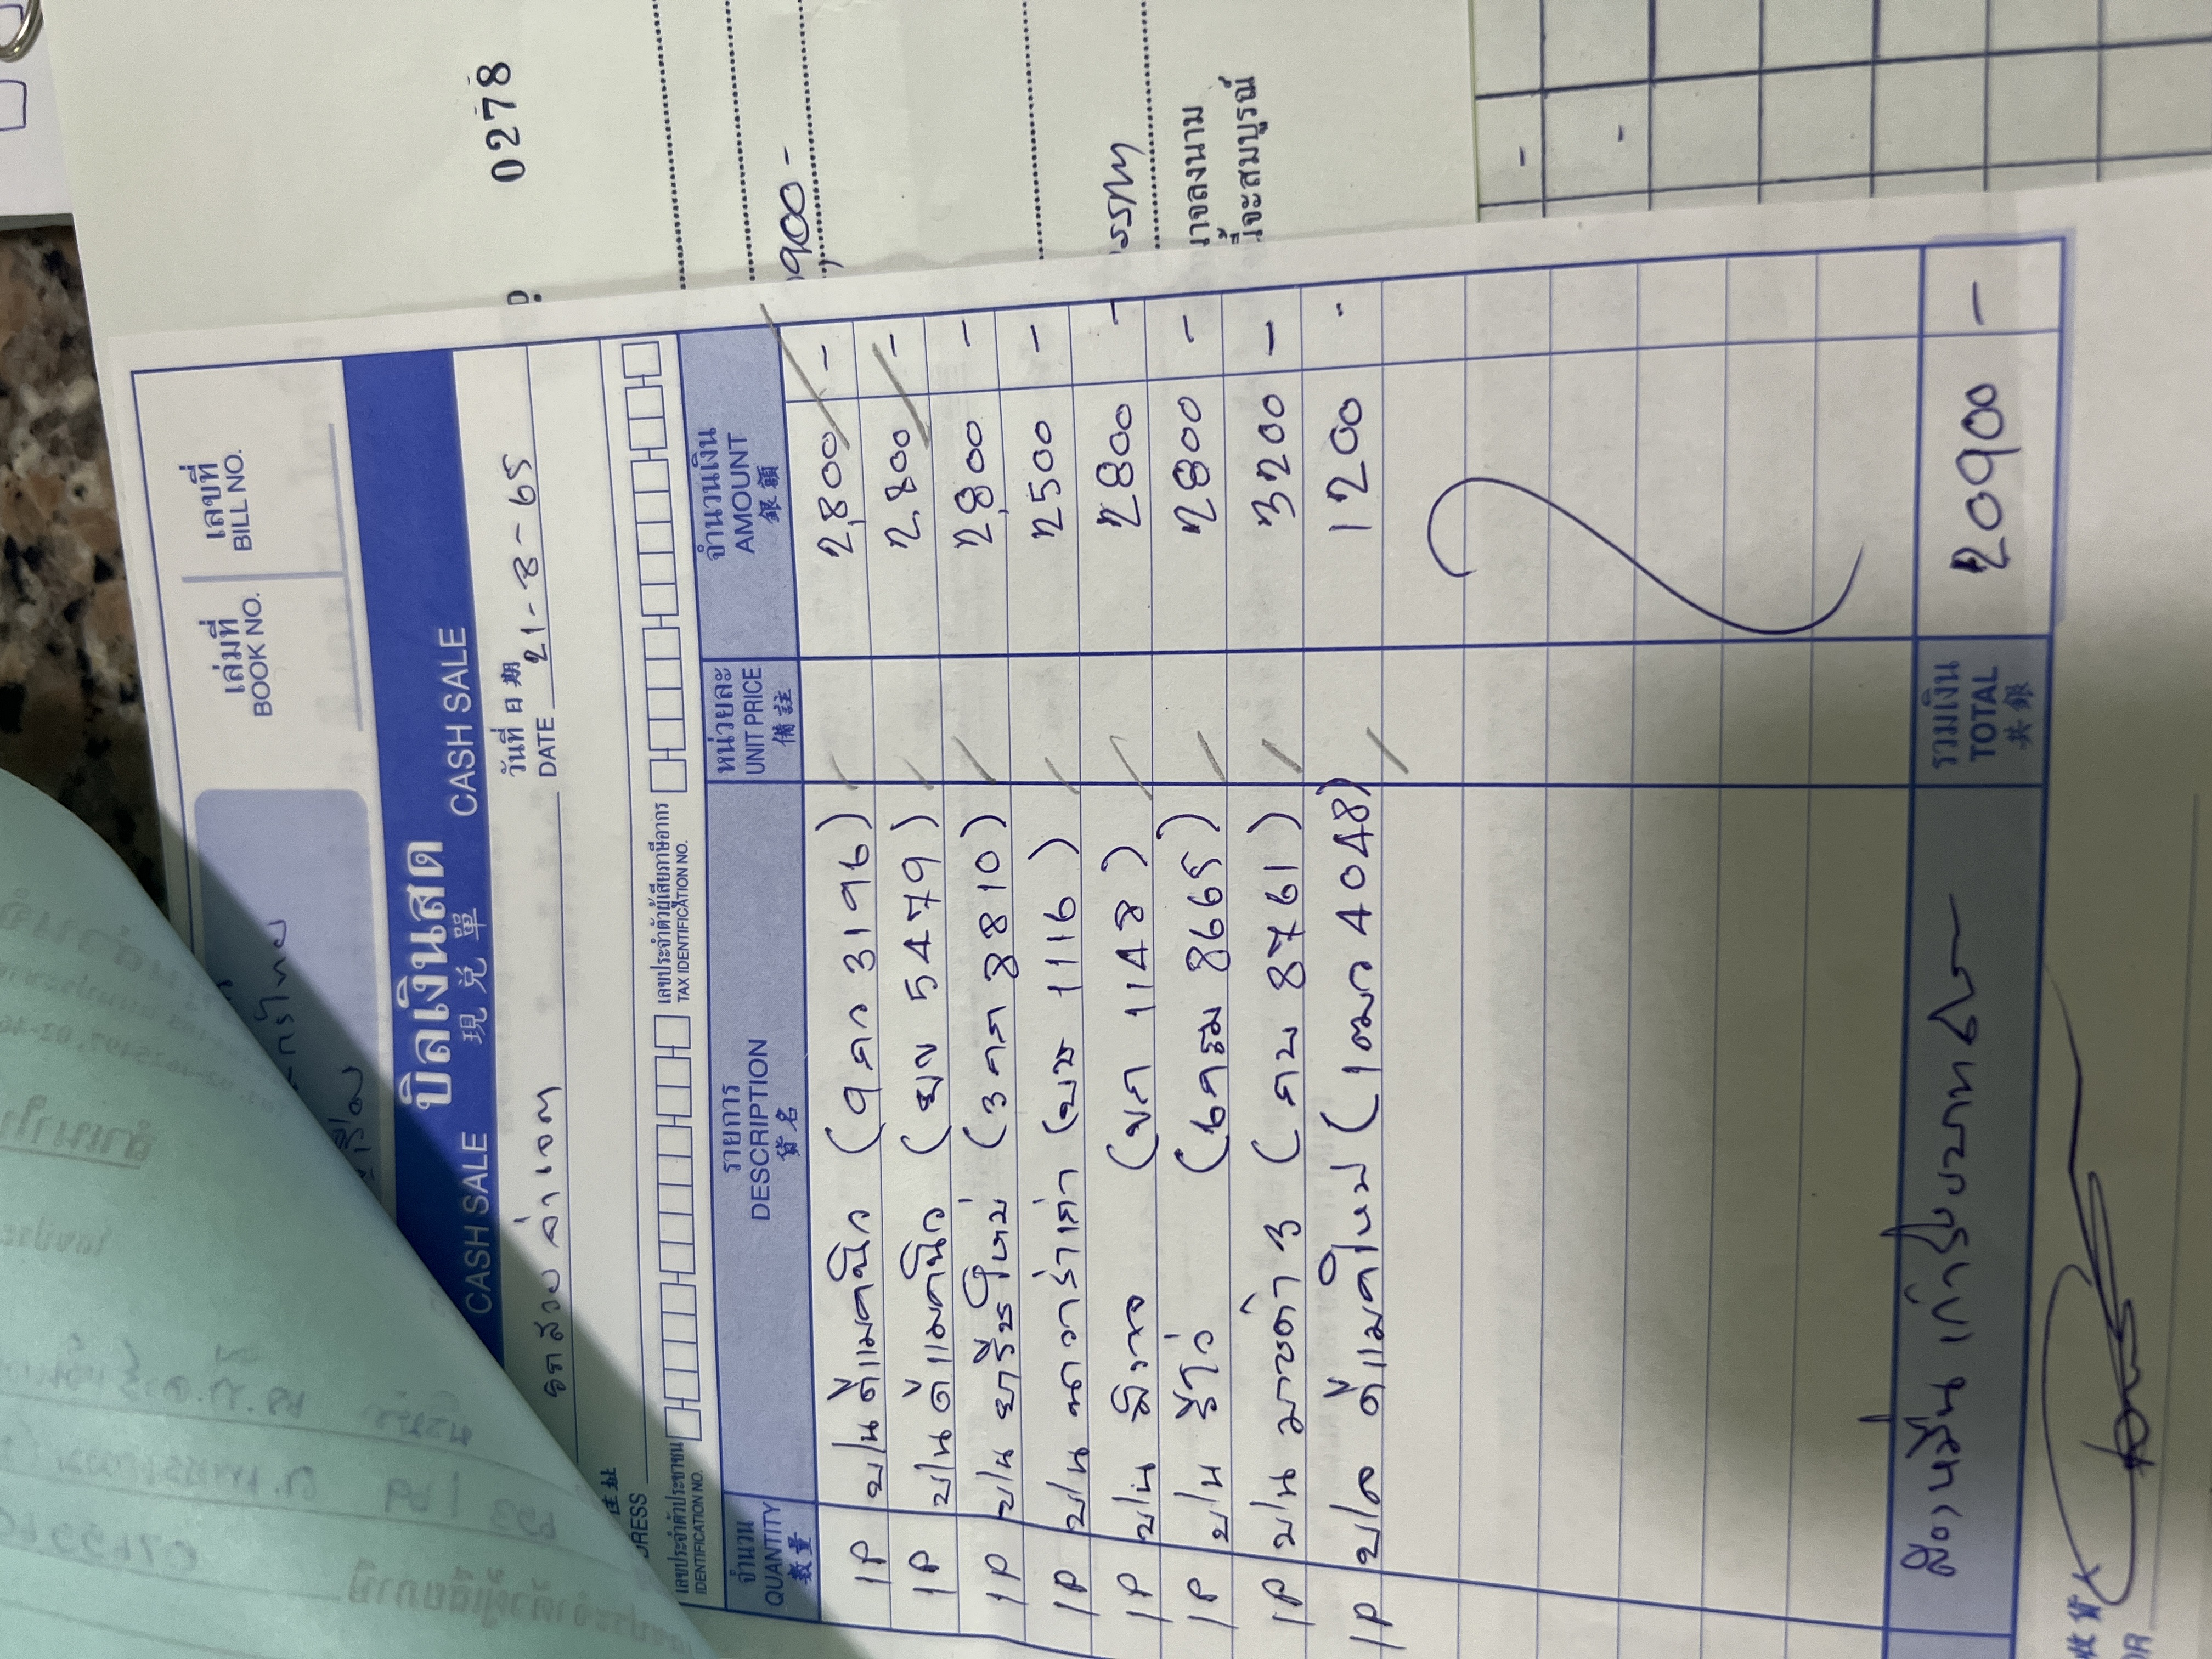 0278
900 -
าจลงนาม
จะสมบูรณ์
เล่มที่ เลขที่
BOOK NO. BILL NO.
CASH SALE บิลเงินสด CASH SALE
現 兌 單
วันที่ 日 期
DATE 21-8-65
DRESS
เลขประจำตัวประชาชน
IDENTIFICATION NO.
เลขประจำตัวผู้เสียภาษีอากร
TAX IDENTIFICATION NO.
จำนวน รายการ หน่วยละ จำนวนเงิน
QUANTITY DESCRIPTION UNIT PRICE AMOUNT
數量 貨名 備註 銀額
1P ป/น ดีแมคนิว (9กว 3196) 2,800 -
1P ป/น ดีแมคนิว (ยข 5479) 2,800 -
1P ป/น ยารีชใหม่ (3กก 8810) 2,800 -
1P ป/น นาวาร่าเก่า (บษ 1116) 2500 -
1P ป/น (ขก 1148) 2800 -
1P ป/น รีโว่ (6กรม 8665) 2800 -
1P ป/น มาซด้า 3 (กบ 8761) 3200 -
1P ป/ด ดีแมคใหม่ (1ฒว 4048) 1200 -
สองหมื่นเก้าร้อยบาทถ้วน รวมเงิน 20900 -
TOTAL
共銀